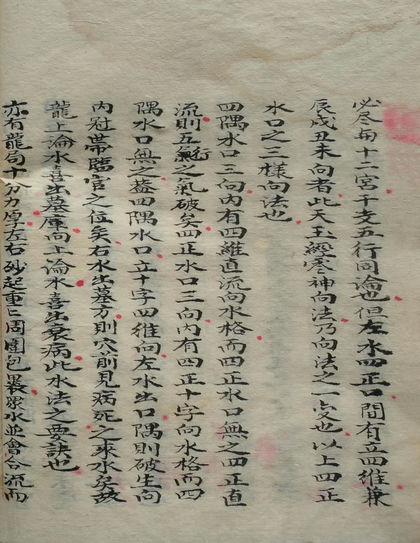 必尽每十二宮干支五行同論也但左水四正口間有立四維兼
辰戌丑未向者此天玉經寄神向法乃向法之一変也以上四正
水口之三樣向法也
四隅水口三向內有四維直流向水格而四正水口無之四正直
流則五氣之氣破矣四正水口三向內有四正十字向水格而四
隅水口無之蓋四隅水口立十字四維向左水出口隅則破生向
內冠帶臨官之位矣右水出墓方則穴前見病死之來水矣故
龍上論水喜出墓庫向上論水喜出衰病此水法之要訣也
亦有龍局十分力厚左右砂起重二周圍包裹眾水並會合流而